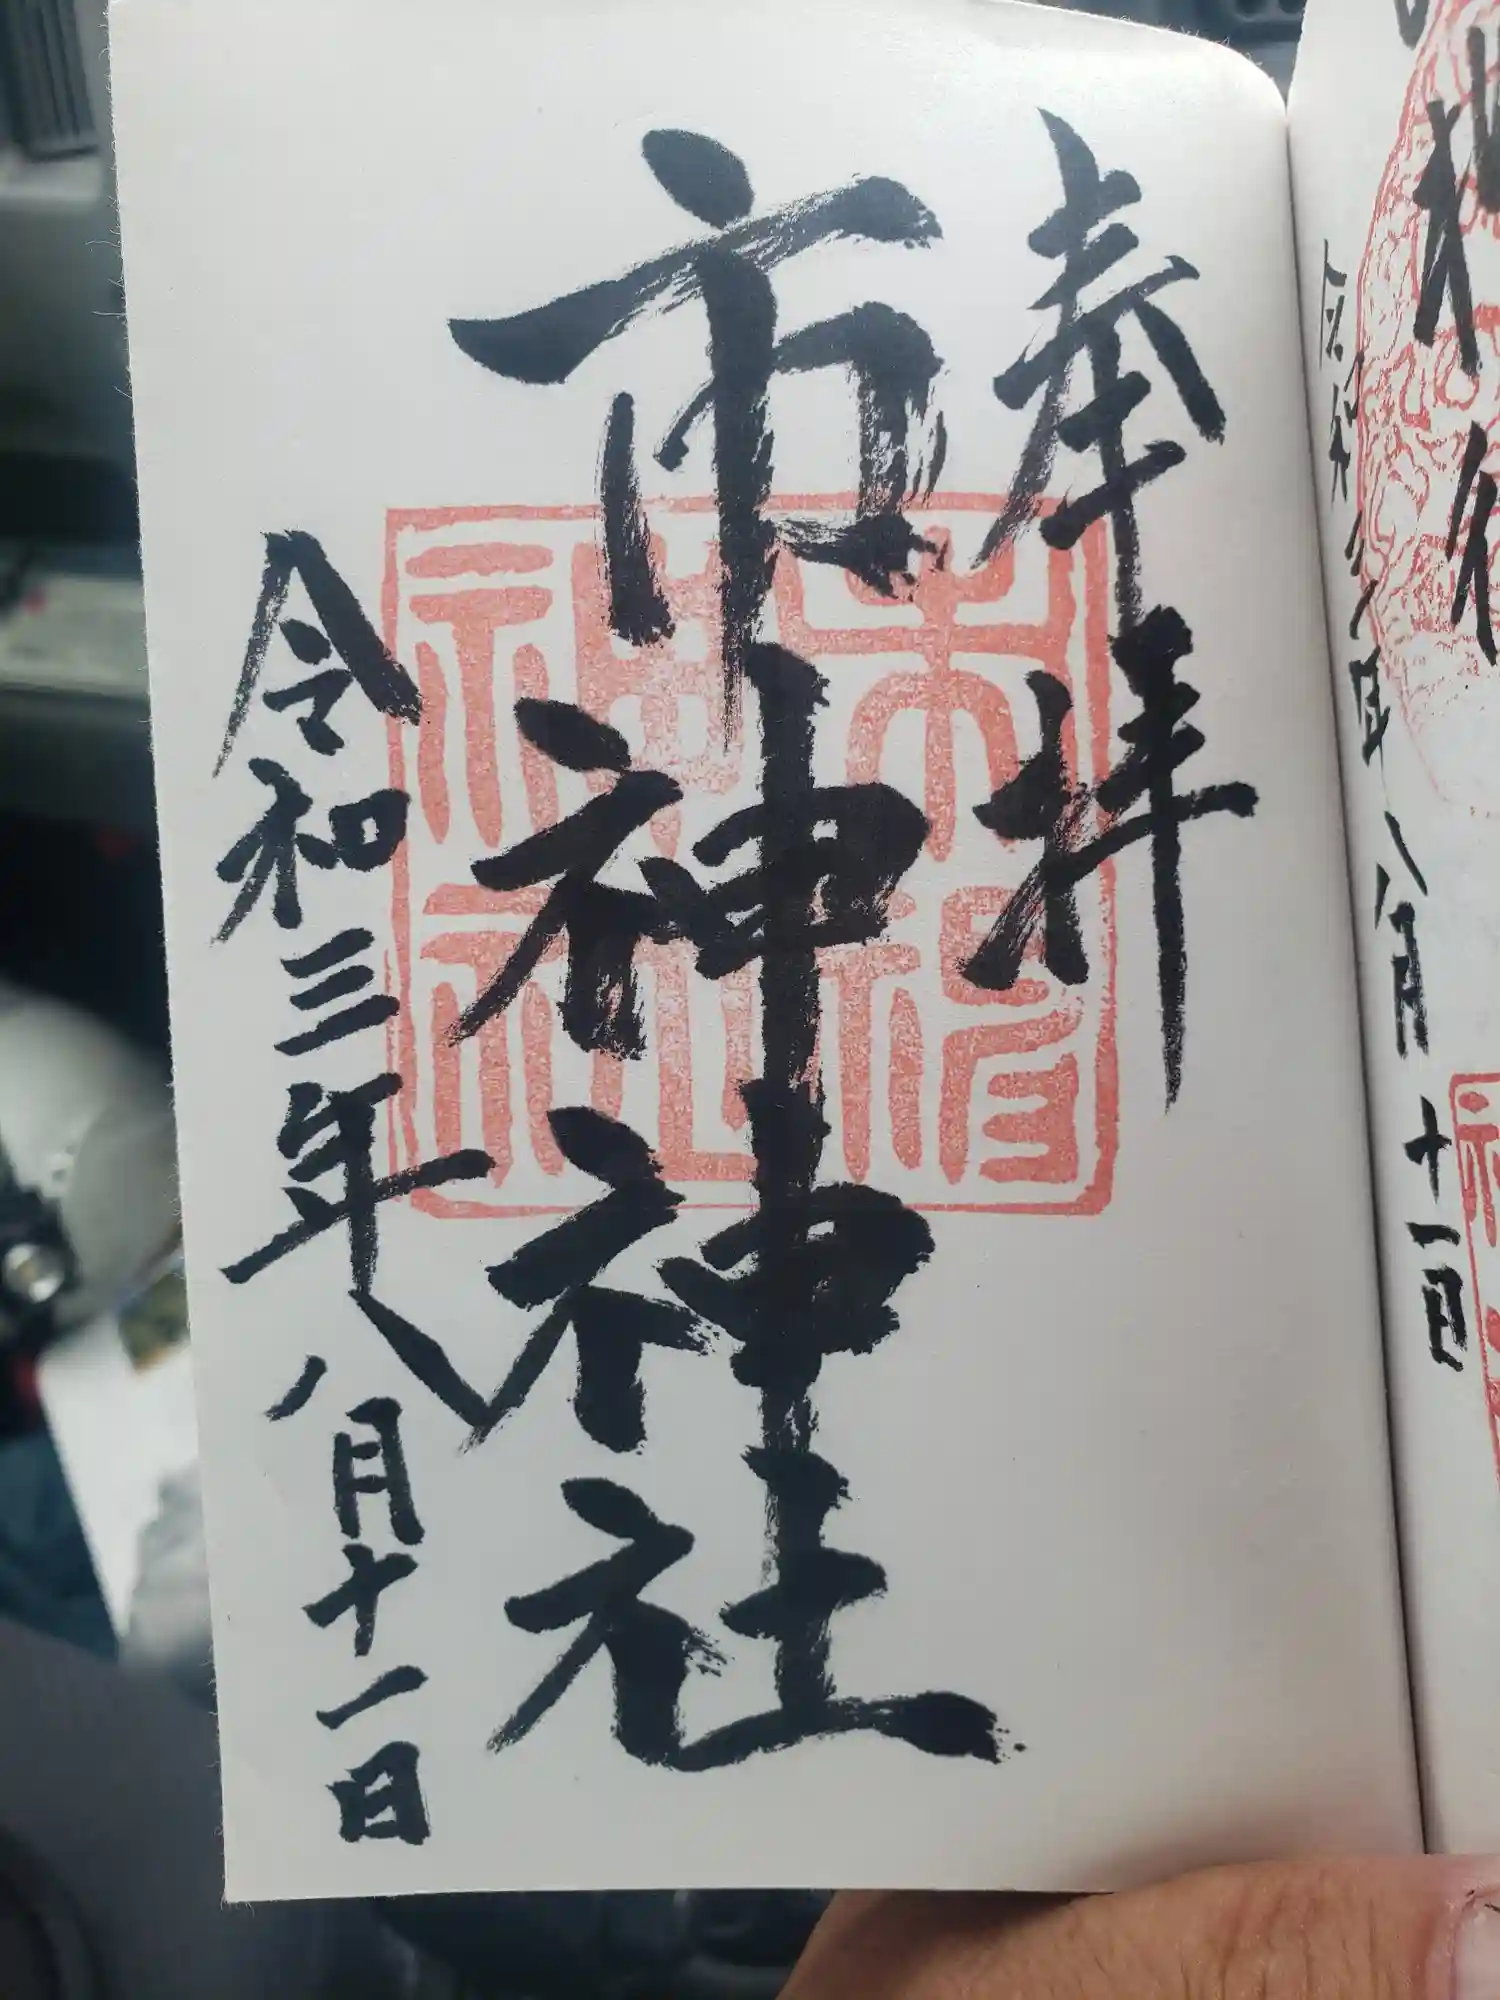 令和三年八月十一日
奉拝
市神神社
神社
令和三年八月十一日